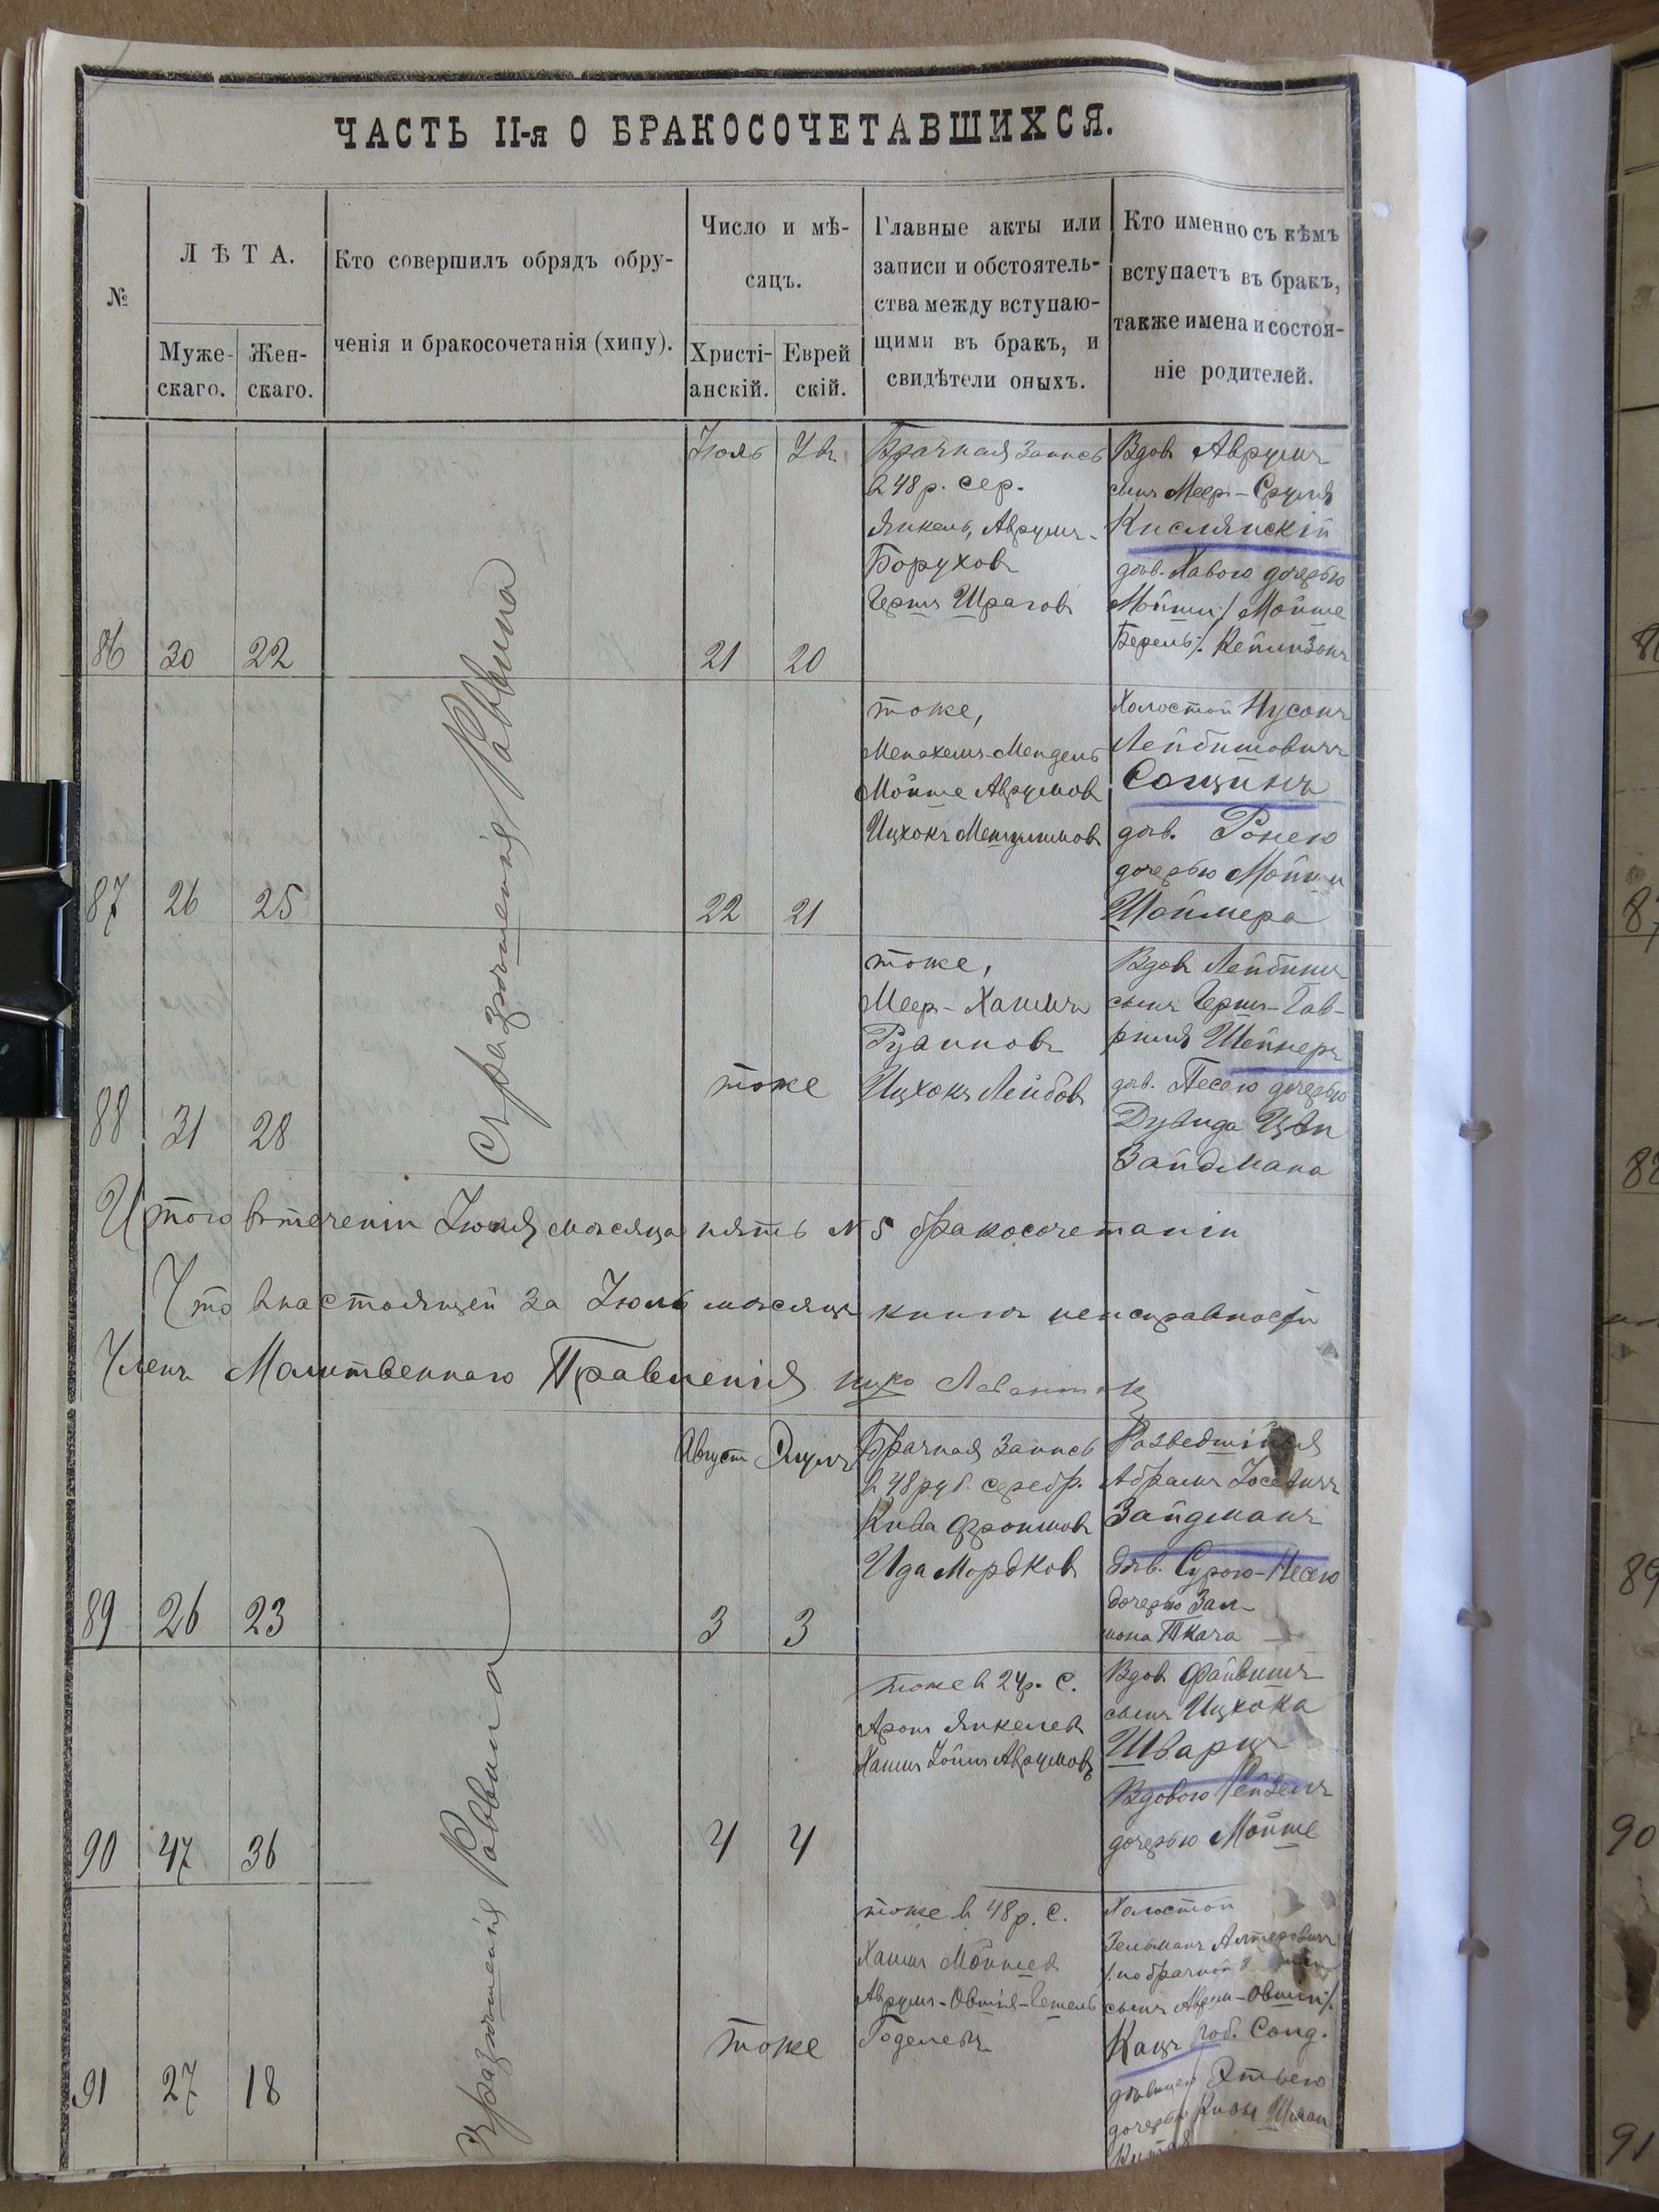 ЧАСТЬ II-я О БРАКОСОЧЕТАВШИХСЯ.
№
ЛѢТА.
Муже-
скаго.
Жен-
скаго.
Кто совершилъ обрядъ обру-
ченія и бракосочетанія (хипу).
Число и мѣ-
сяцъ.
Христі-
анскій.
Еврей
скій.
Главные акты или
записи и обстоятель-
ства между вступаю-
щими въ бракъ, и
свидѣтели оныхъ.
Кто именно съ кѣмъ
вступаетъ въ бракъ,
также имена и состоя-
ніе родителей.
Съ разрѣшенія Раввина
86
30
22
Іюль
21
20
Брачная запись
в 48 р. сер.
Янкель, Аврумъ-
Борухов
Гершъ Шрагов
Вдов Аврумъ
сынъ Меер-Сруля
Кислянскій
дѣв. Хавою дочерью
Мойши /. Мойше
Берель ./ Кейлизонъ
87
26
25
22
21
тоже,
Менахемъ-Мендель
Мойше Аврумов
Ицхокъ Мешулимов
Холостой Нусонъ
Лейбишовичъ
Сощинъ
дѣв. Ронею
дочерью Мойши
Шоймера
88
31
28
тоже
тоже,
Меер-Хаимъ
Ицхокъ Лейбов
Вдов Лейбишъ
сынъ Гершъ-Гав-
риила Шейнеръ
дѣв. Песею дочерью
Дувида Цви
Зайдмана
Итого в теченіи Іюля мѣсяца пять № 5 бракосочетаніи
Что в настоящей за Іюль мѣсяцъ книги неисправности
Членъ Молитвеннаго Правленія
89
26
23
Август
Элулъ
3
3
Брачная запись
в 48 руб. серебр.
Кива Фроимов
Ида Мордков
Разведшійся
Абрамъ Іосевичъ
Зайдманъ
дѣв. Сурою-Несею
дочерью Зал-
мона Ткача
Съ разрѣшенія Раввина
90
47
36
4
4
тоже в 24 р. С.
Аронъ Янкелев
Хаимъ Іойна Аврумовъ
Вдов Файвишъ
сынъ Ицхока
Шварцъ
Вдовою Рейзелъ
дочерью Мойше
91
27
18
тоже
тоже в 48 р. С.
Хаимъ Мойшев
Аврумъ-Овшія-Гецель
Годелевъ
Холостой
Зельманъ Алтеровичъ
/. по брачной
сынъ Аврум-Овшіи ./
Кацъ
дѣвицею Этьею
дочерью Кивы
86
87
88
89
90
91